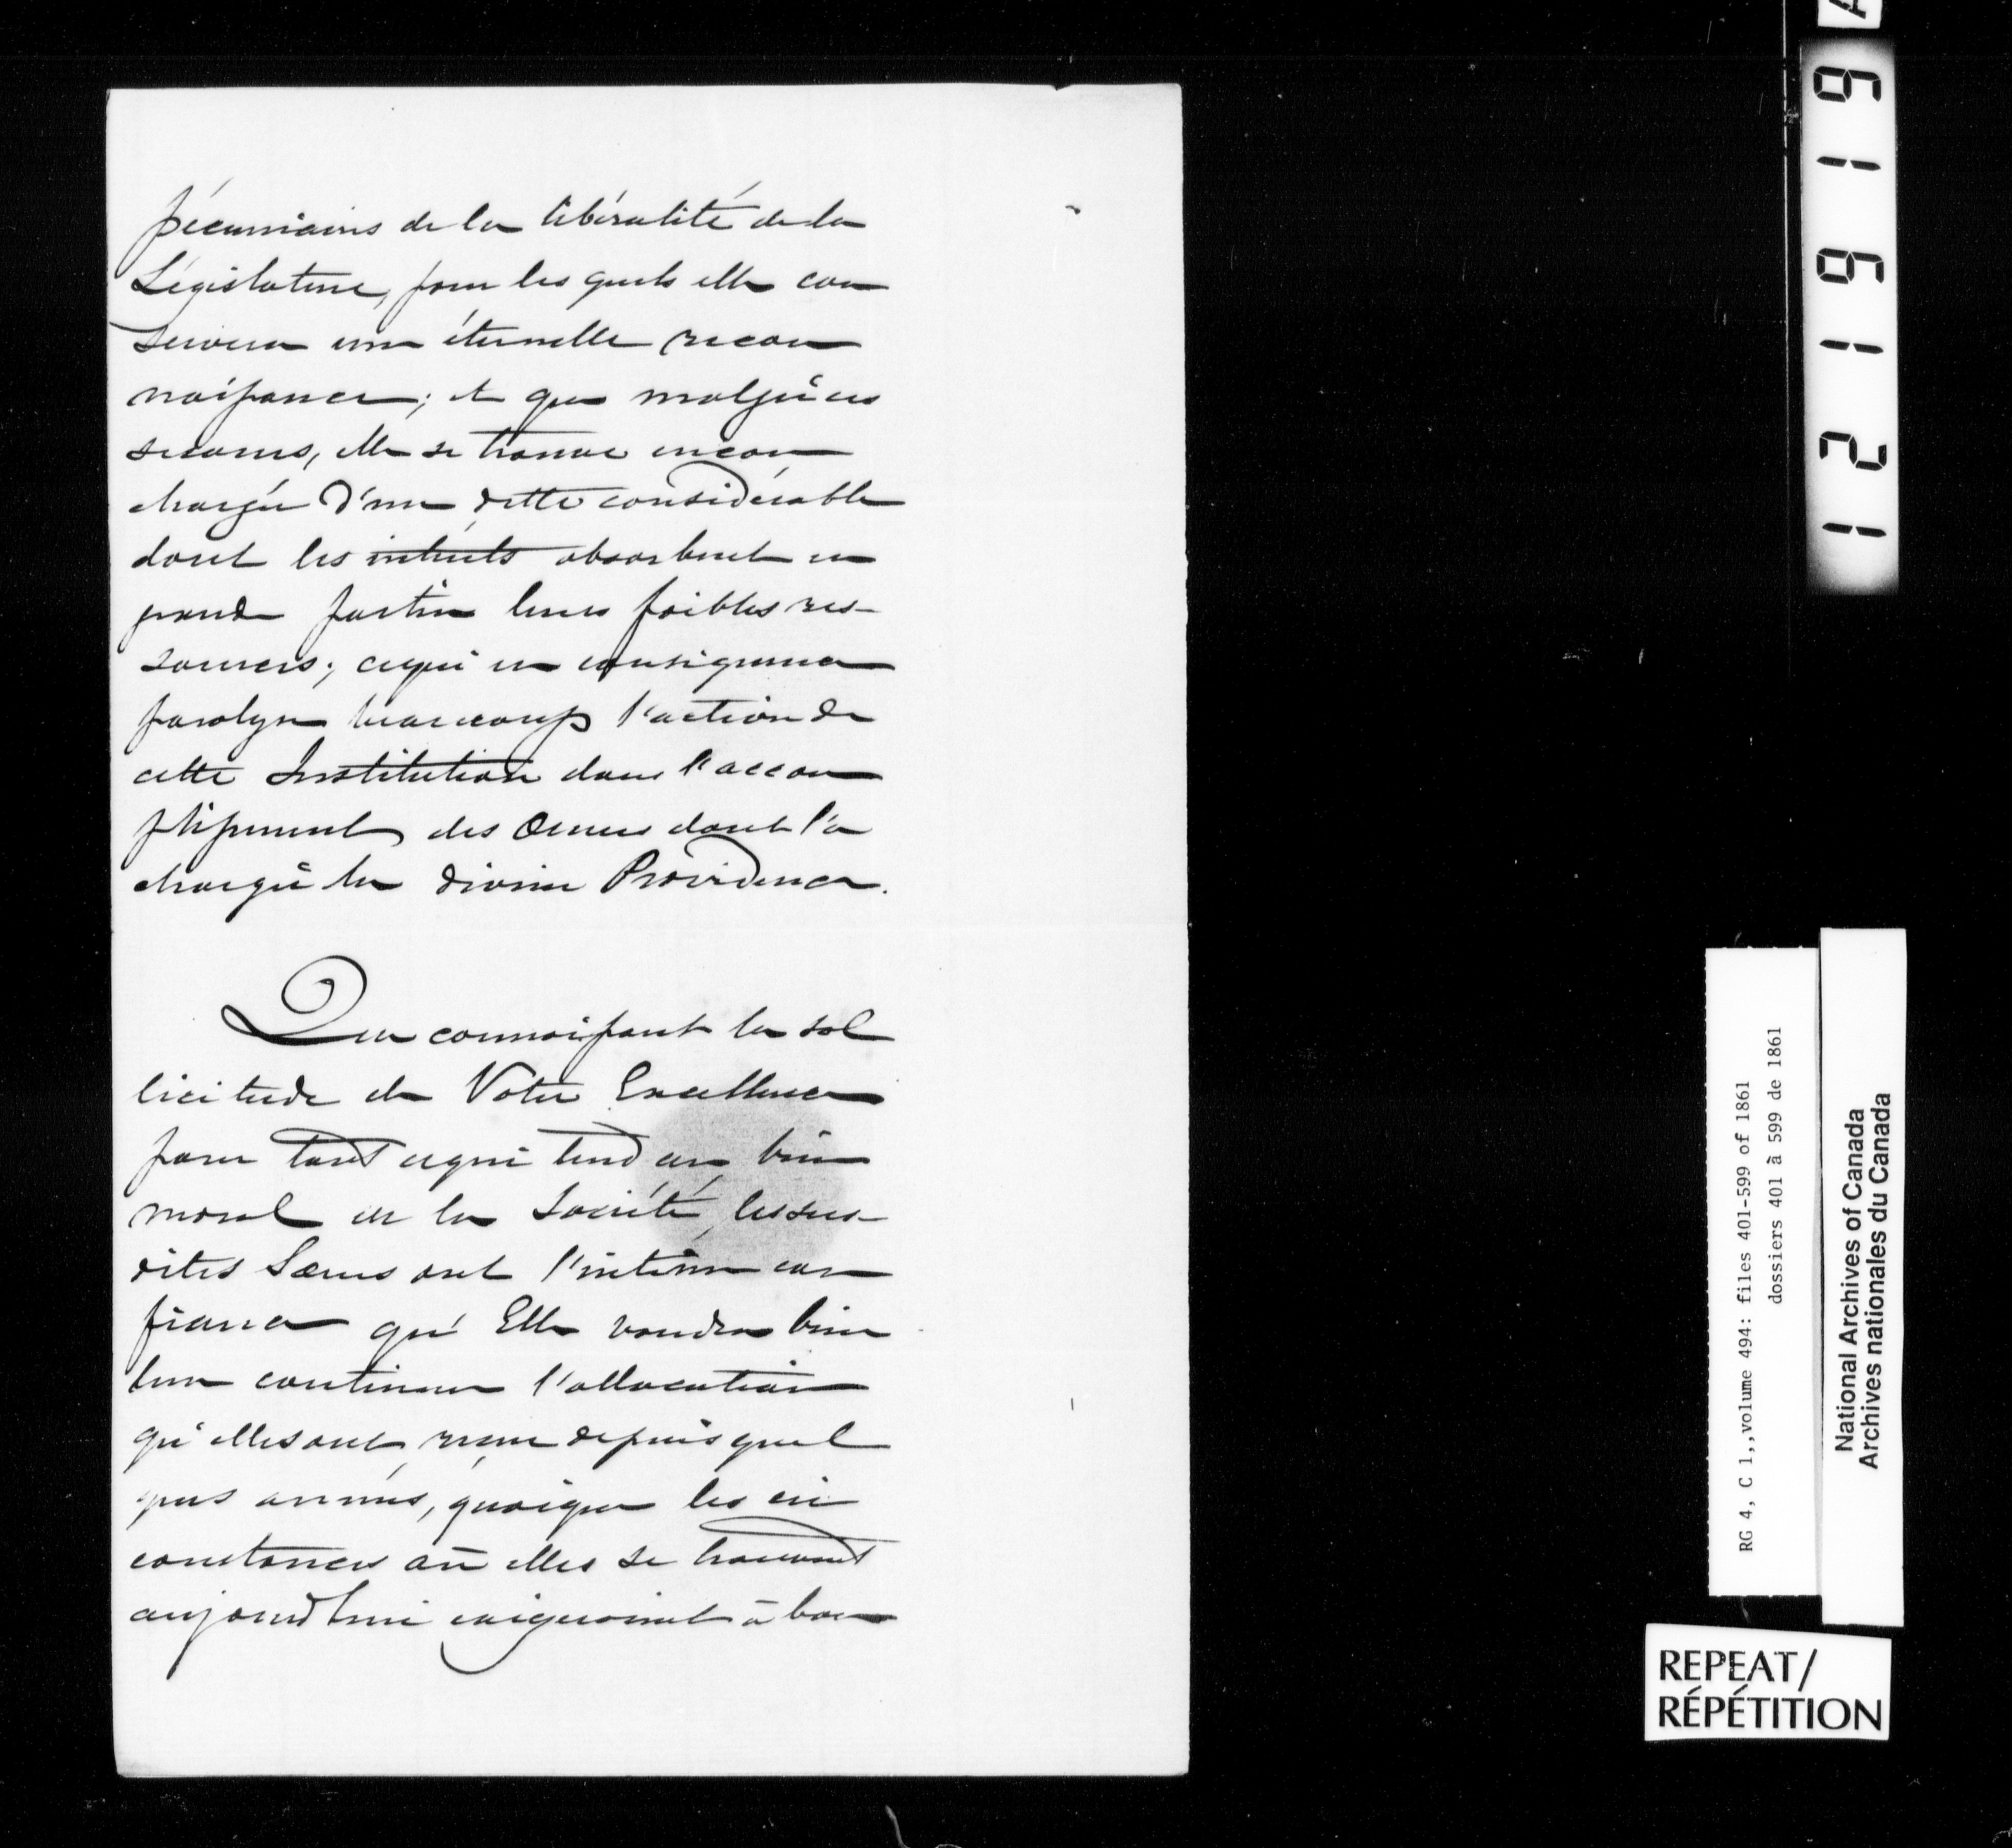 pécuniaires de la libéralité de la
Législature, pour les quels elle con
servera une éternelle recon
naissance; et que malgré ces
secours, elle se trouve encore
chargée d'une dette considérable
dont les intérêts absorbent en
grande partie leurs foibles res-
sources; ce qui en conséquence
paralyse beaucoup l'action de
cette Institution dans l'accom
plissement des Œuvres dont l'a
chargée la divine Providence.
Que connoissant la sol
licitude de Votre Excellence
pour tout ce qui tend au bien
moral de la Société, les sus-
dites Sœurs ont l'intime con
fiance qu'Elle voudra bien
leur continuer l'allocation
qu'elles ont reçue depuis quel
ques années, quoique les cir
constances où elles se trouvent
aujourd'hui exigeroient à bon
A
121616
RG 4, C 1,,volume 494: files 401-599 of 1861
dossiers 401 à 599 de 1861
National Archives of Canada
Archives nationales du Canada
REPEAT/
RÉPÉTITION